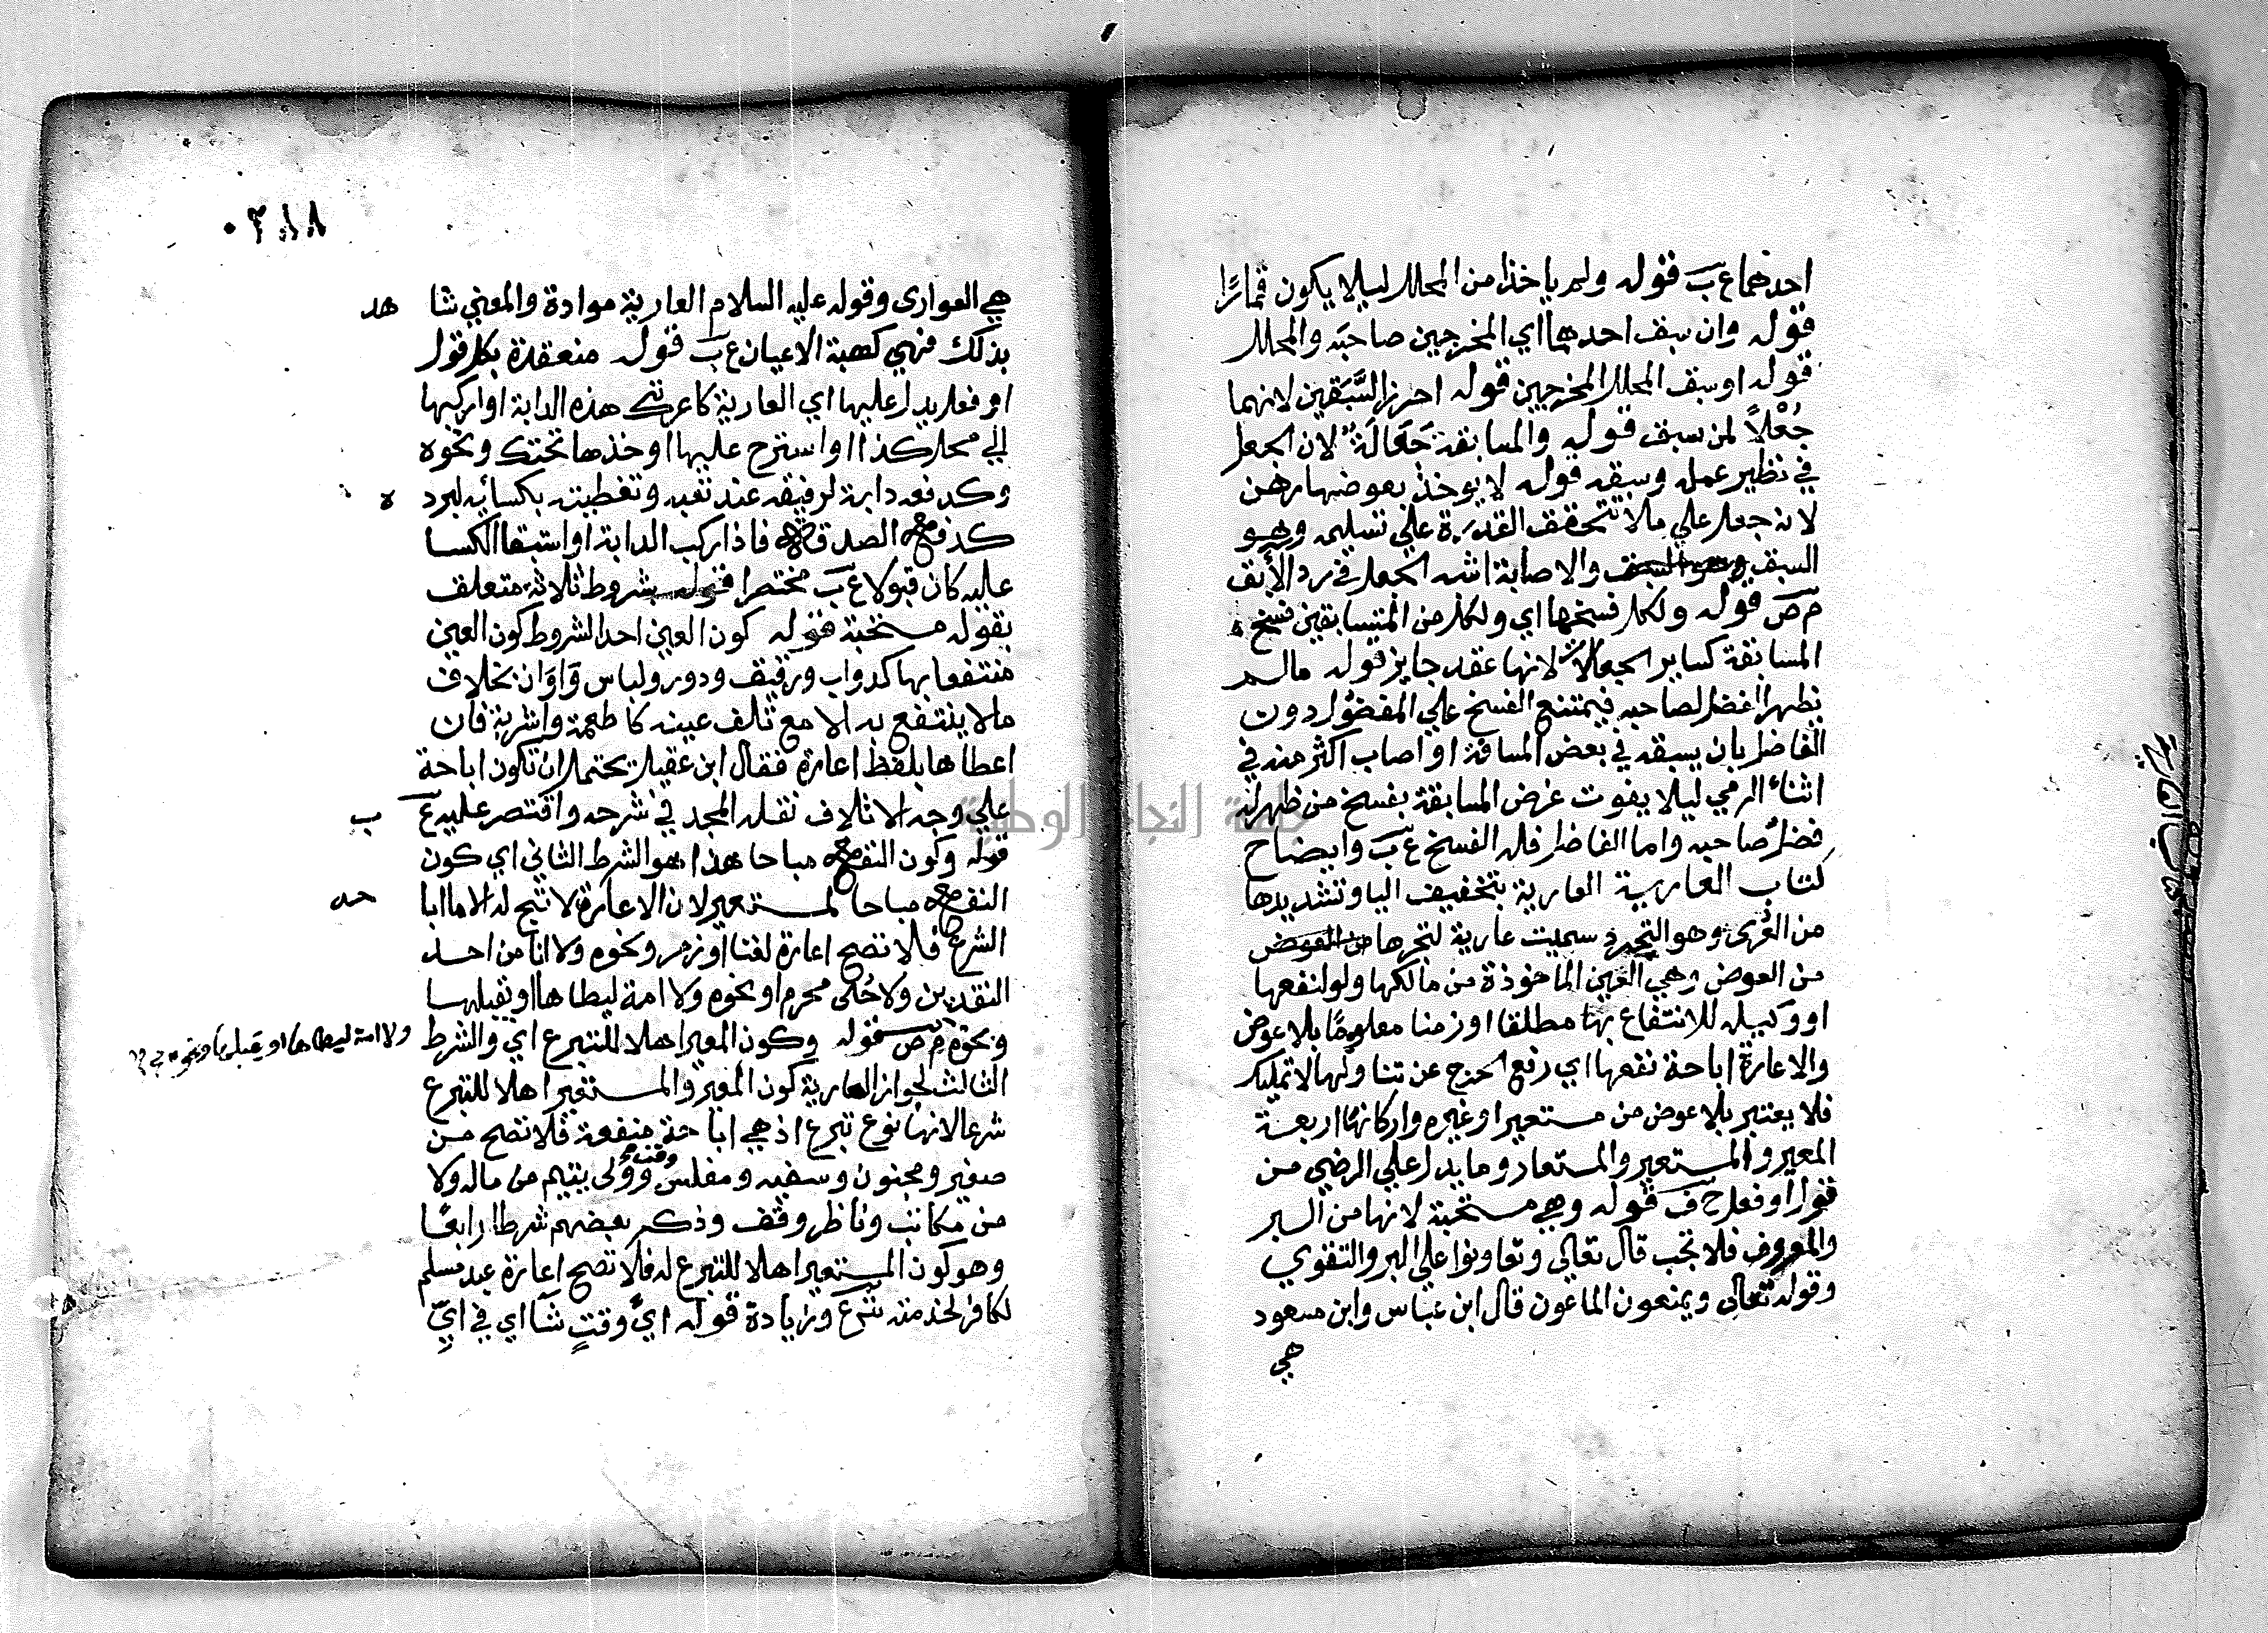 احدهما ع ب قوله ولم ياخذا من المحلل ليلا يكون قمارًا
قوله وان سبق احدهما اي المخرجين صاحبَه والمحلل
قوله او سبق المحلل المخرجين قوله احرز السَّبَقين لانهما
جُعْلاً لمن سبق قوله والمسابقة جَعَالَةٌ لان الجعل
في نظير عمله وسبقه قوله لا يوخذ بعوضها رهن
لانه جعل علي ما لا تتحقق القدرة علي تسليمه وهو
السبق والاصابة اشبه الجعل في رد الأبق
م ص قوله ولكل فسخها اي ولكل من المتسابقين فسخ
المسابقة كساير الجعالات لانها عقد جايز قوله مالم
يظهر الفضل لصاحبه فيمتنع الفسخ علي المفضُول دون
الفاضل بان يسبقه في بعض المسافة او اصاب اكثر منه في
اثناء الرمي ليلا يفوت غرض المسابقة بفسخ من ظهر له
فضلُ صاحبه واما الفاضل فله الفسخ ع ب وايضاح
كتاب العارية العارية بتخفيف اليا وتشديدها
من العُرْي وهو التجرد سميت عارية لتجرها من العوض
من العوض وهي العين الماخوذة من مالكها ولو لنفعها
او وكيله للانتفاع بها مطلقا او زمنا معلومًا بلا عوض
والاعارة اباحة نفعها اي رفع الحرج عن تناولها لا تمليك
فلا يعتبر بلا عوض من مستعير او غيره واركانها اربعة
المعير والمستعير والمستعار وما يدل علي الرضي من
قول او فعل ح ف قوله وهي مستحبة لانها من البر
والمعروف فلا تجب قال تعالى وتعاونوا علي البر والتقوي
وقوله تعالى ويمنعون الماعون قال ابن عباس وابن مسعود
هي
كتاب العارية
هي العوارى وقوله عليه السلام العارية موادة والمعني شا هد
بذلك فهي كهبة الاعيان ع ب قوله منعقدة بكل قول
او فعل يدل عليها اي العارية كاعرتك هذه الدابة او اركبها
الي محل كذا او استرح عليها او خذها تحتك ونحوه
وكدفعه دابة لرفيقه عند تعبه وتغطيته بكسائه لبرد ه
كدفع الصدقة فاذا ركب الدابة او استبقا الكسا
عليه كان قبولا ع ب مختصرا قوله بشروط ثلاثة متعلق
بقوله مستحبة قوله كون العين احد الشروط كون العين
منتفعا بها كدواب ورقيق ودور ولباس وَاوَان بخلاف
ما لا ينتفع به الا مع تلف عينه كاطعمة واشربة فان
اعطاها بلفظ اعارة فقال ابن عقيل يحتمل ان تكون اباحة
علي وجه الاتلاف نقله المجد في شرحه واقتصر عليه ع ب
قوله وكون النفع مباحا هذا هو الشرط الثاني اي كون
النفع مباحا لمستعير لان الاعارة لا تبيح له الا ما ابا حه
الشرع فلا تصح اعارة لغنا او زمر ونحوه ولا انا من احد
النقدين ولا حُلى محرم او نحوه ولا امة ليطاها او يقبلها
ونحوه م ص قوله وكون المعير اهلا للتبرع اي والشرط
ولا امة ليطاها او يقبلها ونحوه
الثالث لجواز العارية كون المعير والمستعير اهلا للتبرع
شرعا لانها نوع تبرع اذ هي اباحة منفعة فلا تصح من
صغير ومجنون وسفيه ومفلس وولى يتيم من ماله ولا
من مكاتب وناظر وقف وذكر بعضهم شرطا رابعًا
وهو كون المستعير اهلا للتبرع له فلا تصح اعارة عبد مسلم
لكافر لخدمته ش ع وزيادة قوله ايَّ وقتٍ شاا اي في ايِّ